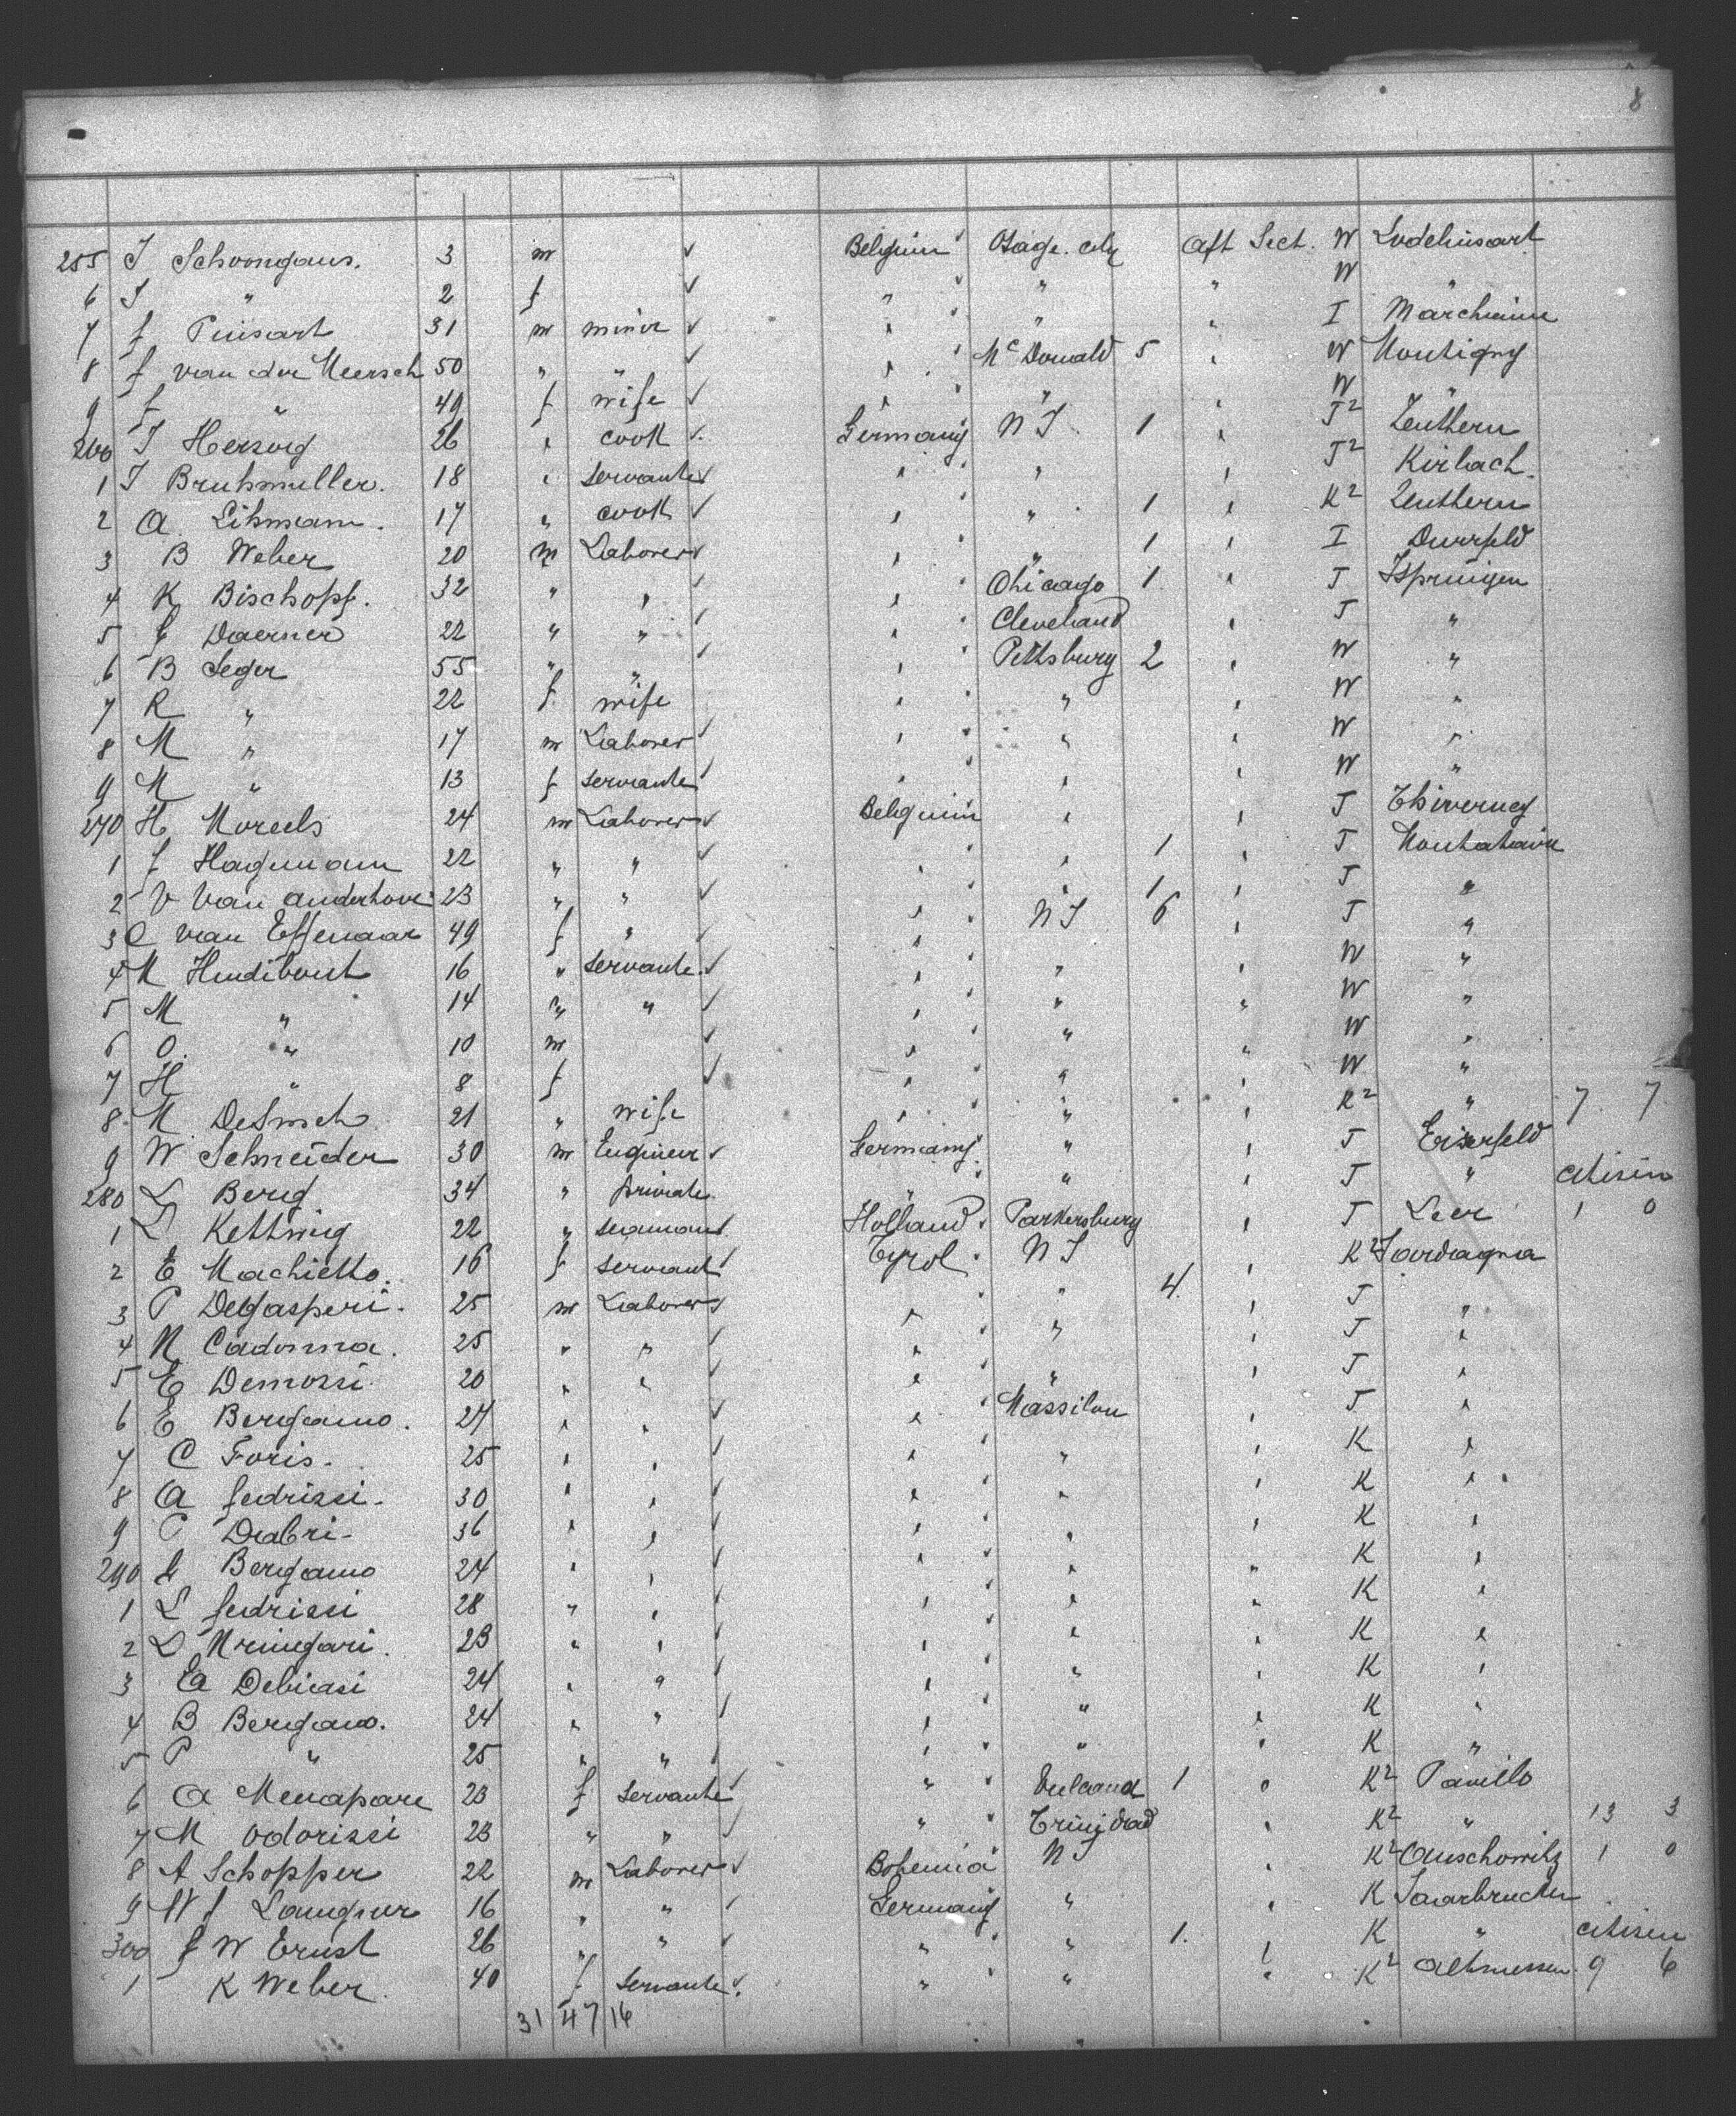 8
255 J Schoongans. 3 m Belgium Osage. city Aft Sect. W Lodelinsart
6 J " 2 f " " " W "
7 f Pinsart 31 m miner " " " I Marchienne
8 f van der Meersch 50 " " " Mc Donald 5 " W Montigny
9 f " 49 f wife " " " W "
260 J Herzog 26 " cook Germany N J 1 " J2 Zeuthern
1 J Bruhmuller. 18 " servante " " " J2 Kirlach.
2 A. Lihmann. 17 " cook " " 1 " K2 Zeuthern
3 B Weber 20 m Laborer " " 1 " I Durrfeld
4 K Bischoff. 32 " " " Chicago 1 " J Ispringen
5 G Daerner 22 " " " Cleveland " J "
6 B Seger 55 " " " Pettsburg 2 " W "
7 R " 22 f wife " " " W "
8 M " 17 m Laborer " " " W "
9 M " 13 f servante " " " W "
270 H Moreels 24 m Laborer Belguim " " J Thiverney
1 f Hagemann 22 " " " " 1 " J Montataire
2 V Van anderhove 23 " " " " 1 " J "
3 C van Effenaar 49 f " " N J 6 " J "
4 M Hudibout 16 " servante. " " " W "
5 M " 14 " " " " " W "
6 O. " 10 m " " " W "
7 H " 8 f " " " W "
8 M DeSmeh 21 " wife " " " K2 " 7 7
9 W Schneider 30 m Engineur Germany " " J Eiserfeld
280 L Berg 34 " private " " " J " citisen
1 L Kettwig 22 " seamans Holland Parkersburg " J Leer 1 0
2 E Machietto. 16 f servant Tyrol N J " K2 Sardagna
3 P Degasperi. 25 m Laborer " " 4. " J "
4 N Cadonna. 25 " " " " " J "
5 E Demozzi 20 " " " " " J "
6 E Bergamo. 27 " " " Massilon " J "
7 C Foris. 25 " " " " " K "
8 A fedrizzi. 30 " " " " " K "
9 P Drabri. 36 " " " " " K "
290 G Bergamo 24 " " " " " K "
1 L fedrizzi 28 " " " " " K "
2 D 23 " " " " " K "
3 E Debiasi 24 " " " " " K "
4 B Bergamo. 24 " " " " " K "
5 P " 25 " " " " " K "
6 A Menapare 23 f servante " 1 " K2
7 M Odorizzi 23 " " " Trinidad " K2 " 13 3
8 A Schopper 22 m Laborer Bohemia N J " K2 Auschowitz 1 0
9 16 " " Germany " " K Saarbrucken
300 f W Ernst 26 " " " " 1. " K " citisen
1 K Weber. 40 f servante. " " " K2 9 6
31 47 16